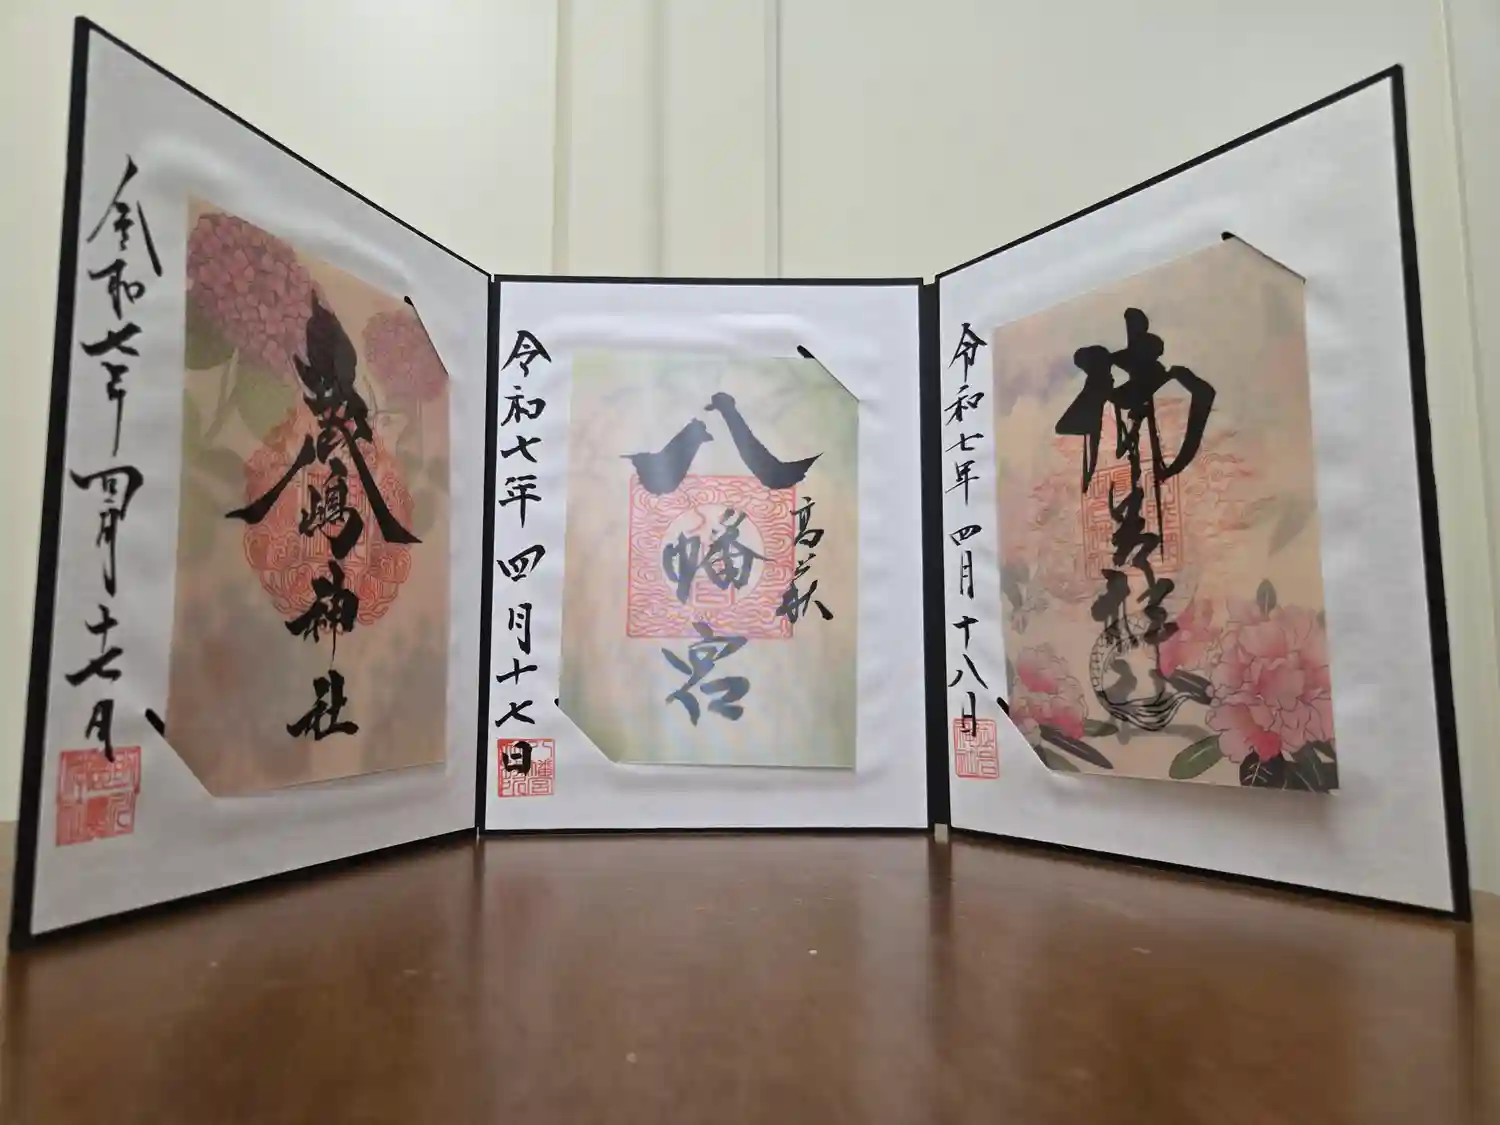 令和七年四月十七日
嚴嶋神社
令和七年四月十七日
八幡宮
高萩
令和七年四月十八日